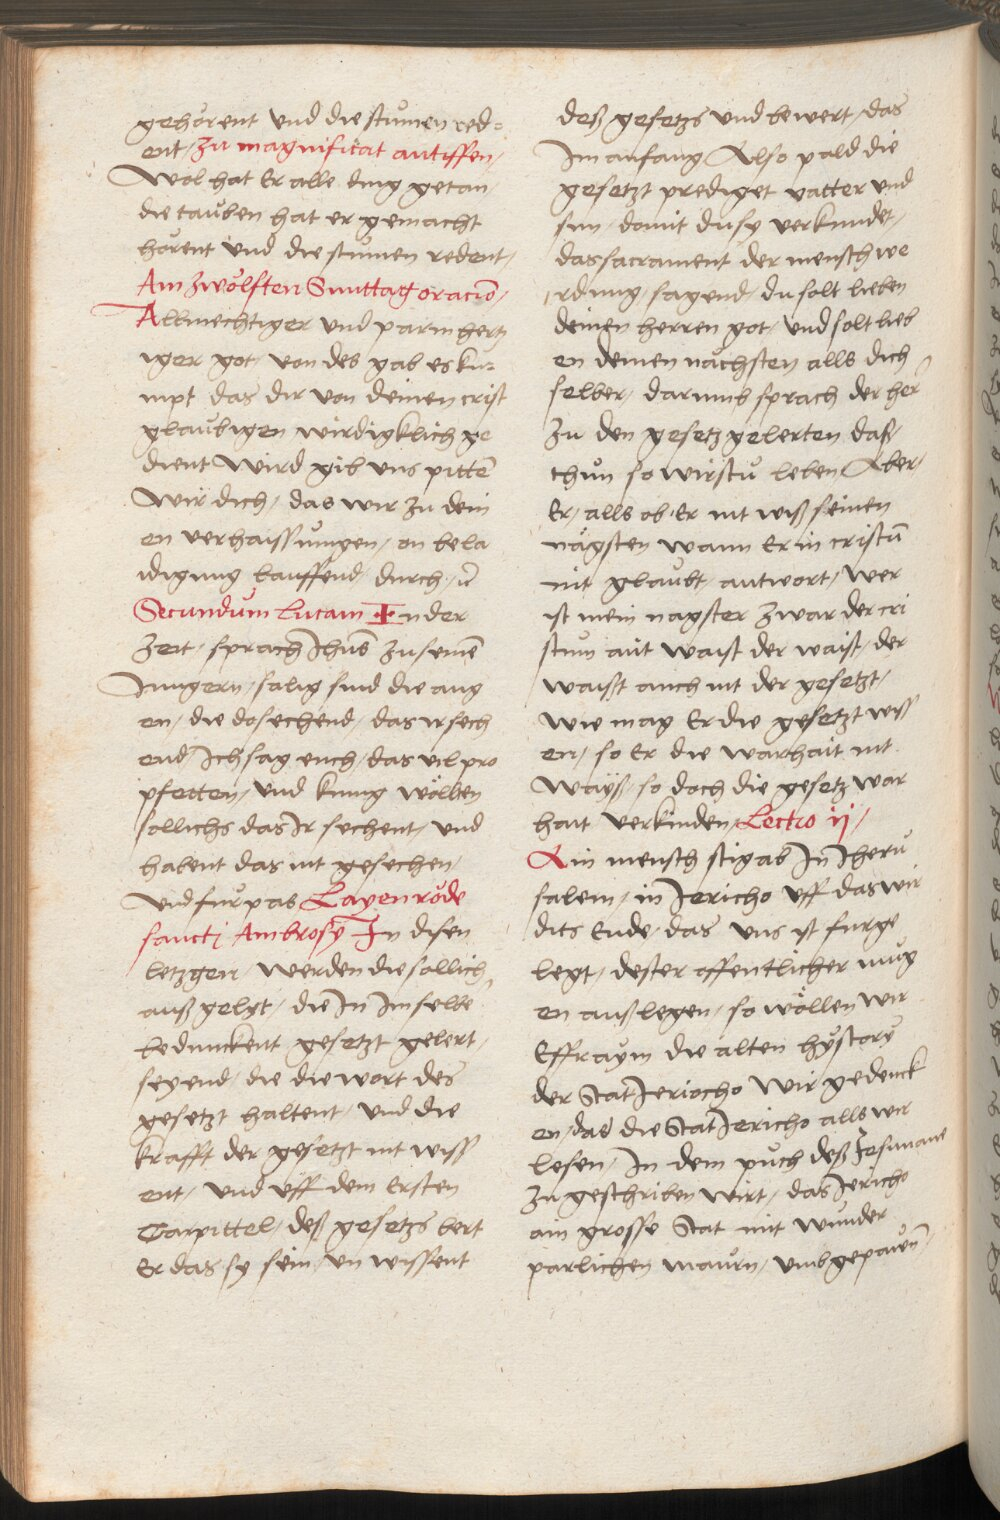 gehorent und die stůmen red-
ent / Zu magnificat antiffen /
Wol hat Er alle ding getan
die tauben hat er gemacht
horent und die stůmen redent /
Am zwölften Sunttag oracio /
Allmechtiger und parmhertz
iger got / von des gab es ku-
mpt das dir von deinen crist
glaubigen wirdigklich ge
dient wird gib uns pitten
Wir dich / das wir zu dein
en verhaissungen / on bela
idigung lauffend durch
Secundum Lucam In der
Zeit / sprach Jhus zu seinen
Jungern / salig sind die aug
en / die do sechend / das ir sech
end / Ich sag euch / das vil pro
pfetten / und kunig wöllen
sollichs das Ir sechent / und
habent das nit gesechen /
Und furpas Layenrode
sancti Ambrosy In disen
letzgen / werden die sollich
aussgelegt / die In Im selbe
bedunckent gesetzt gelert /
seyend / die die wort des
gesetzt haltent / und die
krafft der gesetzt nit wiss
ent / und uff dem Ersten
Carpittel / deß gesetzs lert
Er das sy sein un wissent
deß gesetzs und bewert / das
Im anfang Also pald die
gesetzt prediget vatter und
sun / domit du sy verkundet /
das sacrament der mensch we
rdung / sagend / du solt lieben
deinen herren got / und solt lieb
en deinen nächsten alls dich
selber / darumb sprach der her
Zu den gesetz gelerten das /
thun so wirstu leben Aber /
Er / alls ob Er nit wiß seinen
nägsten wann Er in cristu
nit glaubt / antwort / wer
ist mein nagster zwar der cri
stum nit waist der waist / der
waisst auch nit der gesetzt /
wie mag Er die gesetzt wiss
en / so Er die warhait nit
wayß / so doch die gesetz war
hait verkinden / Lectio ij /
Ain mensch stig ab In Iheru
salem / in Jericho uff das wir
dits Ende / das uns ist furge
legt / dester offentlicher mug
en außlegen / so wöllen wir
Effraym die alten hystory
der Stat Jeriocho wir gedenck
en / das die Stat Jericho alls wir
lesen / In dem puch deß Jesu nave
zu geschriben wirt / das Jericho
ain grosse Stat mit wunder
parlichen maurn / umbgepauen